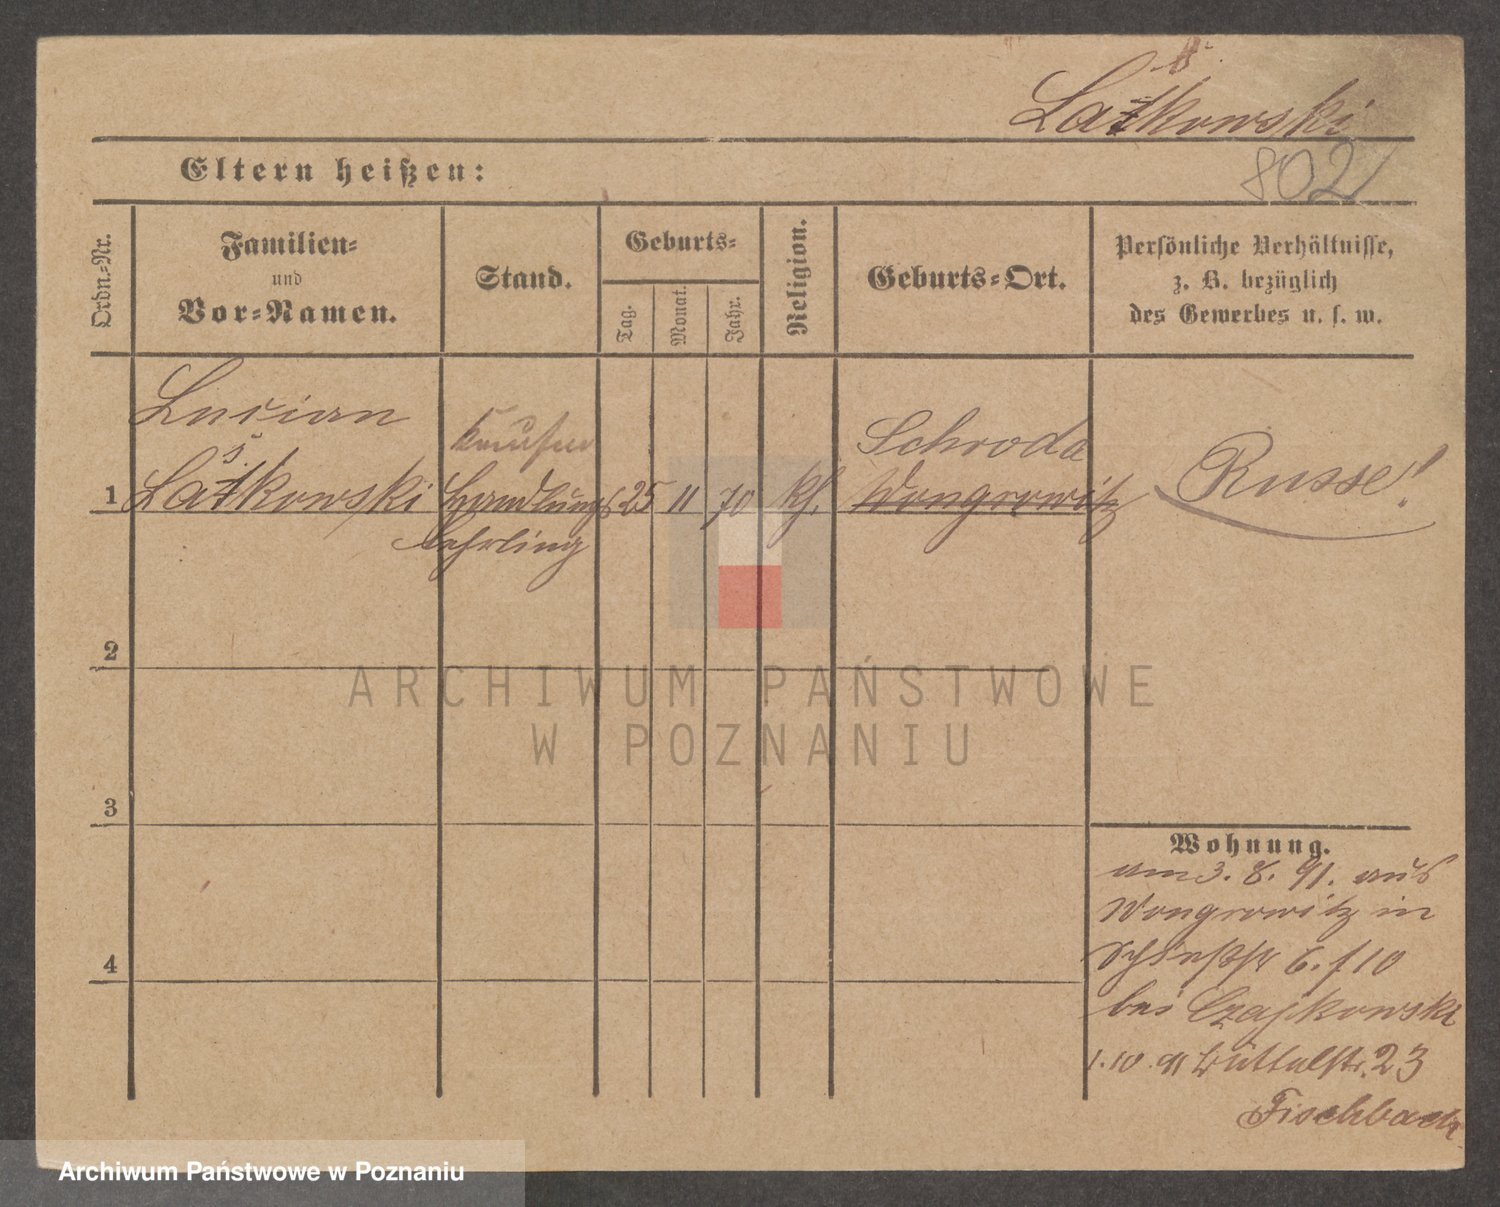 Latkowski
802
Eltern heißen:
Ordn.-Nr.
Familien-
und
Vor-Namen.
Stand.
Geburts-
Tag.
Monat.
Jahr.
Religion.
Geburts-Ort.
Persönliche Verhältnisse,
z. B. bezüglich
des Gewerbes u. s. w.
Lucian
Latkowski
Kaufm
Handlungs
lehrling
25 11 70
kth.
Schroda
Wongrowitz
Russe!
1
2
3
4
Wohnung.
am 3. 8. 91. aus
Wongrowitz in
6. f 10
bei Czajkowski
1.10.91 Büttelstr. 23
Fischbach
ARCHIWUM PAŃSTWOWE
W POZNANIU
Archiwum Państwowe w Poznaniu